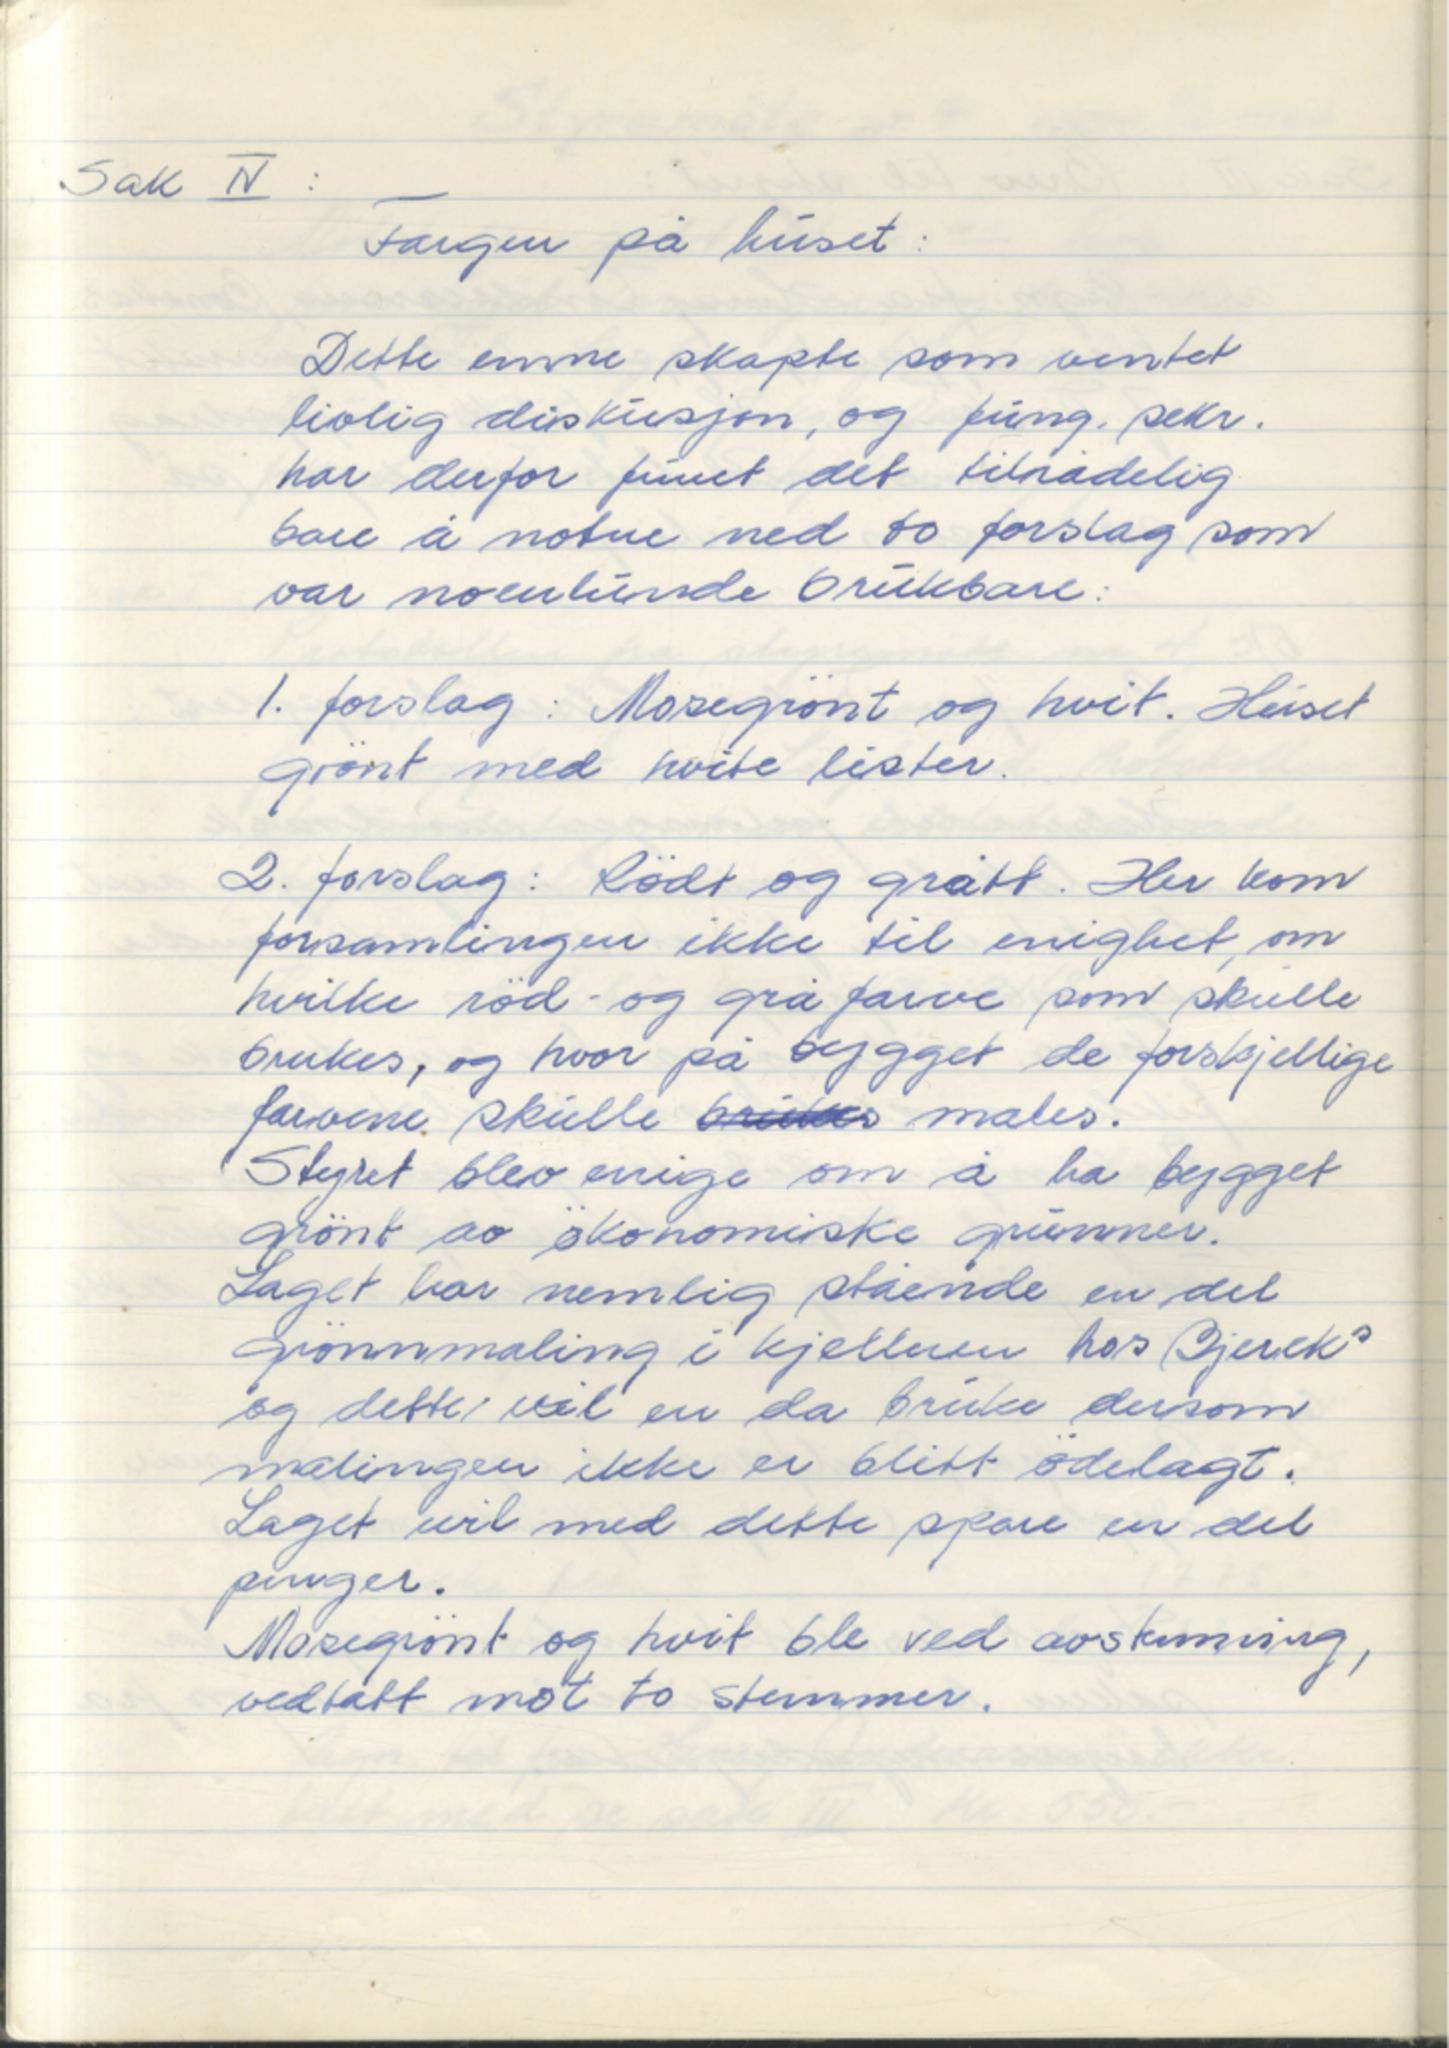 Sak IV :
Fargen på huset :
Dette emne skapte som ventet
livlig diskusjon, og fung. sekr.
har derfor funnet det tilrådelig
bare å notere ned to forslag som
var noenlunde brukbare :
1. forslag : Mosegrönt og hvit. Huset
grönt med hvite lister.
2. forslag : Rödt og grått. Her kom
forsamlingen ikke til enighet, om
hvilke röd- og grå farve som skulle
brukes, og hvor på bygget de forskjellige
farvene skulle brukes males.
Styret blev enige om å ha bygget
grönt av ökonomiske grunner.
Laget har nemlig stående en del
grönnmaling i kjelleren hos Bjerck's
og dette vil en da bruke dersom
malingen ikke er blitt ödelagt.
Laget vil med dette spare en del
penger.
Mosegrönt og hvit ble ved avstemning,
vedtatt mot to stemmer.